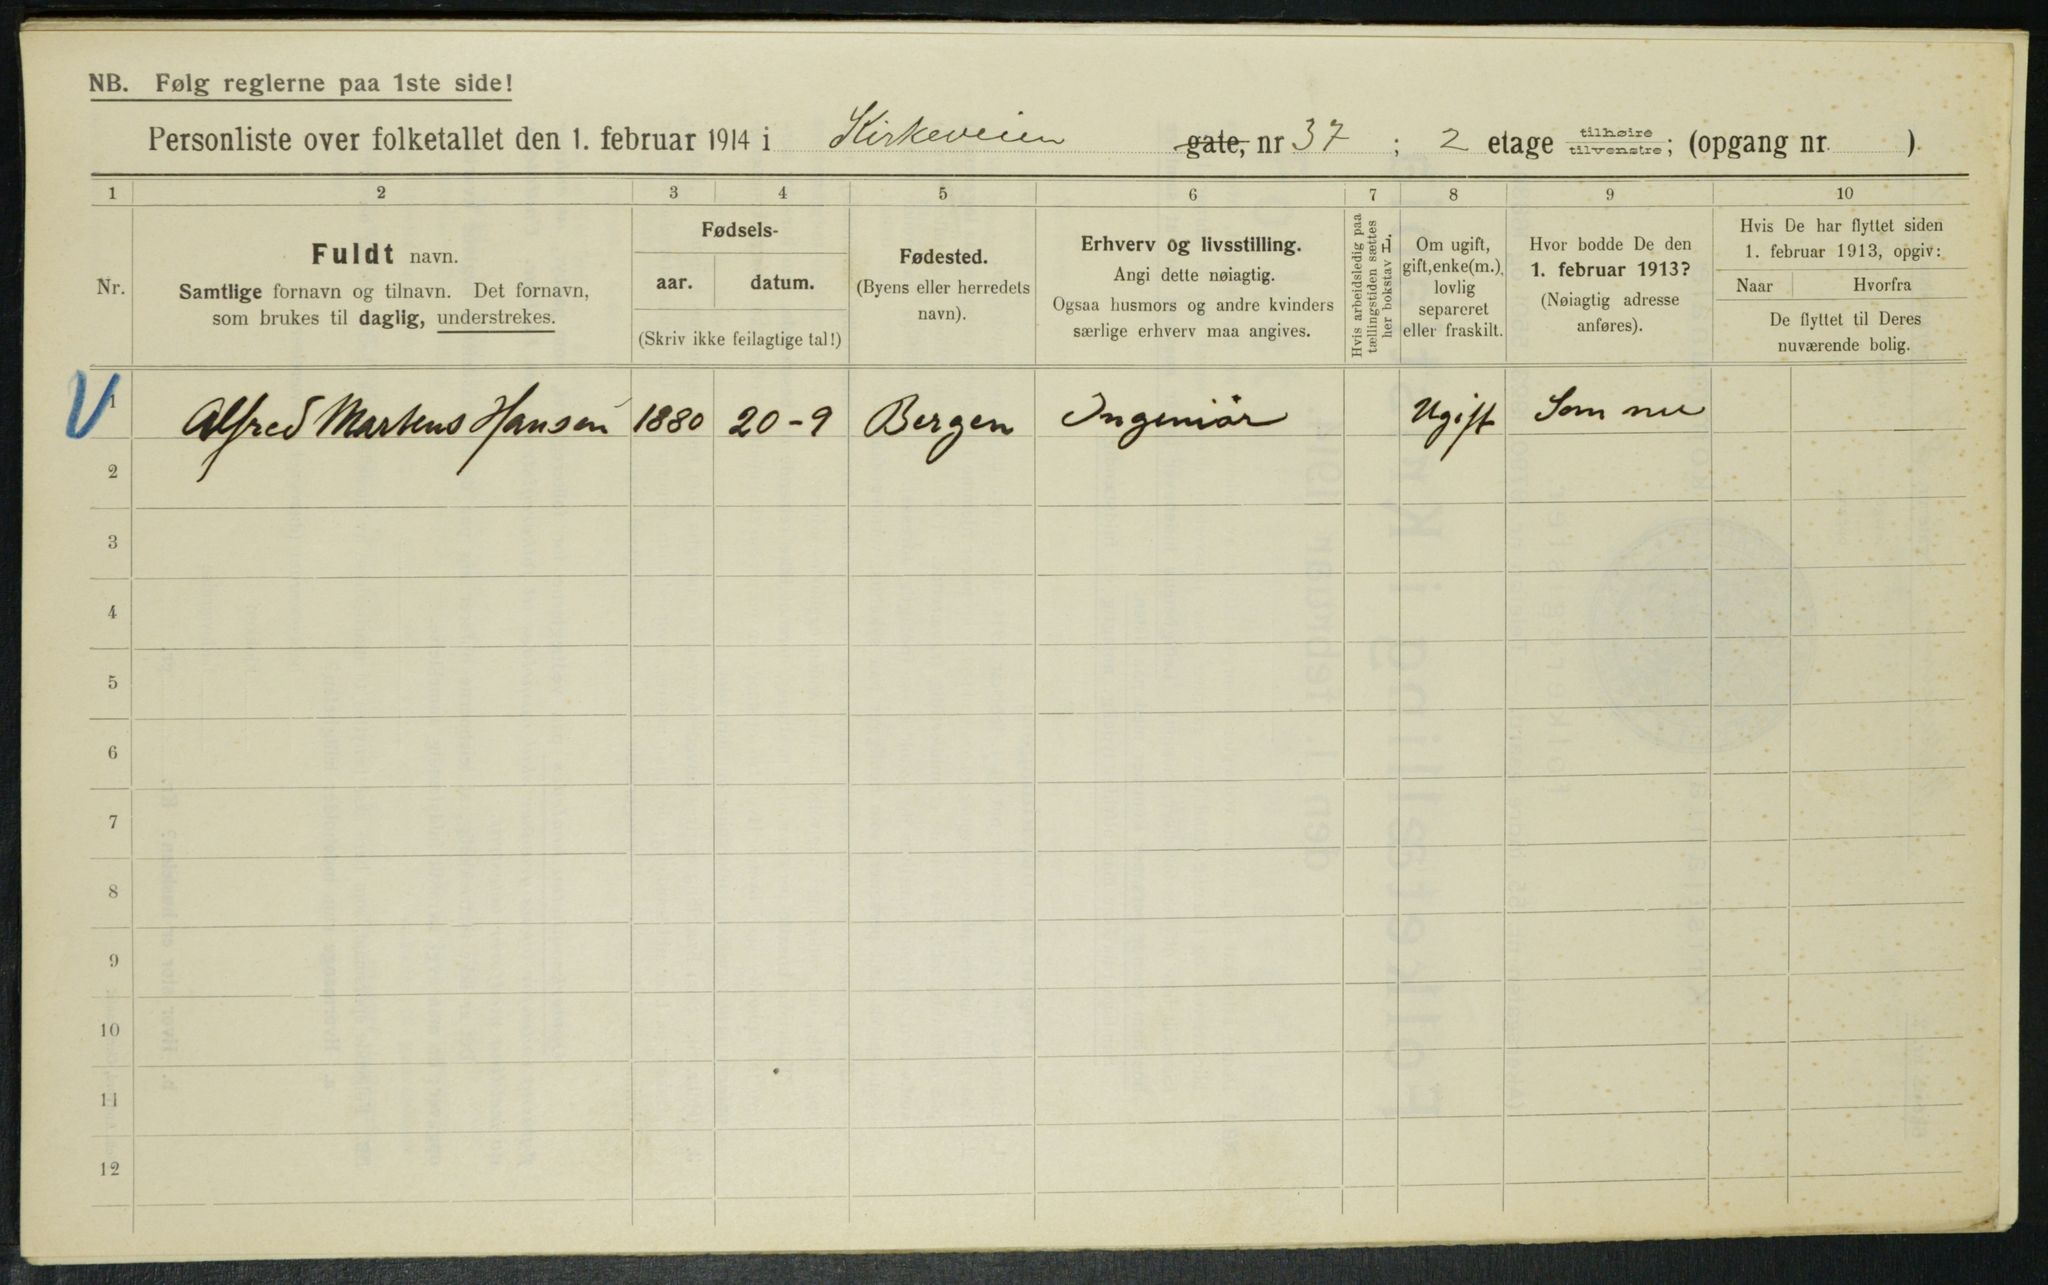 NB. Følg reglerne paa 1ste side!
Personliste over folketallet den 1. februar 1914 i Kirkeveien gate, nr 37 ; 2 etage tilhøire tilvenstre; (opgang nr. )
1 2 3 4 5 6 7 8 9 10
Nr.
Fuldt navn.
Samtlige fornavn og tilnavn. Det fornavn,
som brukes til daglig, understrekes.
Fødsels-
aar. datum.
(Skriv ikke feilagtige tal!)
Fødested.
(Byens eller herredets
navn).
Erhverv og livsstilling.
Angi dette nøiagtig.
Ogsaa husmors og andre kvinders
særlige erhverv maa angives.
Hvis arbeidsledig paa
tællingstiden sættes
her bokstav L.
Om ugift,
gift, enke(m.),
lovlig
separeret
eller fraskilt.
Hvor bodde De den
1. februar 1913?
(Nøiagtig adresse
anføres).
Hvis De har flyttet siden
1. februar 1913, opgiv:
Naar Hvorfra
De flyttet til Deres
nuværende bolig.
1 Alfred Martens Hansen 1880 20-9 Bergen Ingeniør Ugift Som nu
2
3
4
5
6
7
8
9
10
11
12